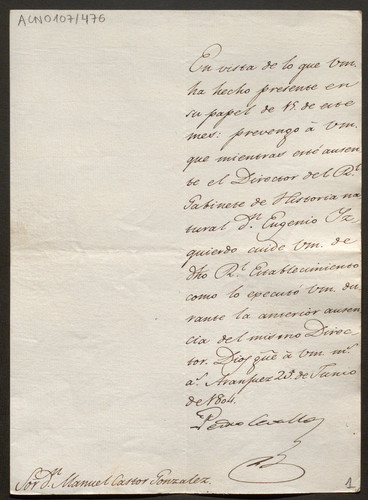 ACN0107/476
En vista de lo que Vm.
ha hecho presente en
su papel de 15. de este
mes: prevengo à Vm.
que mientras esté ausen
te el Director del Rl.
Gabinete de Historia na
tural Dn. Eugenio Yz
quierdo cuide Vm. de
dho Rl. Establecimiento
como lo executó Vm. du
rante la anterior ausen
cia del mismo Direc
tor. Dios gue. à Vm. ms.
as. Aranjuez 23. de Junio
de 1804.
Pedro Cevallos
Sor. Dn. Manuel Castor Gonzalez.
1